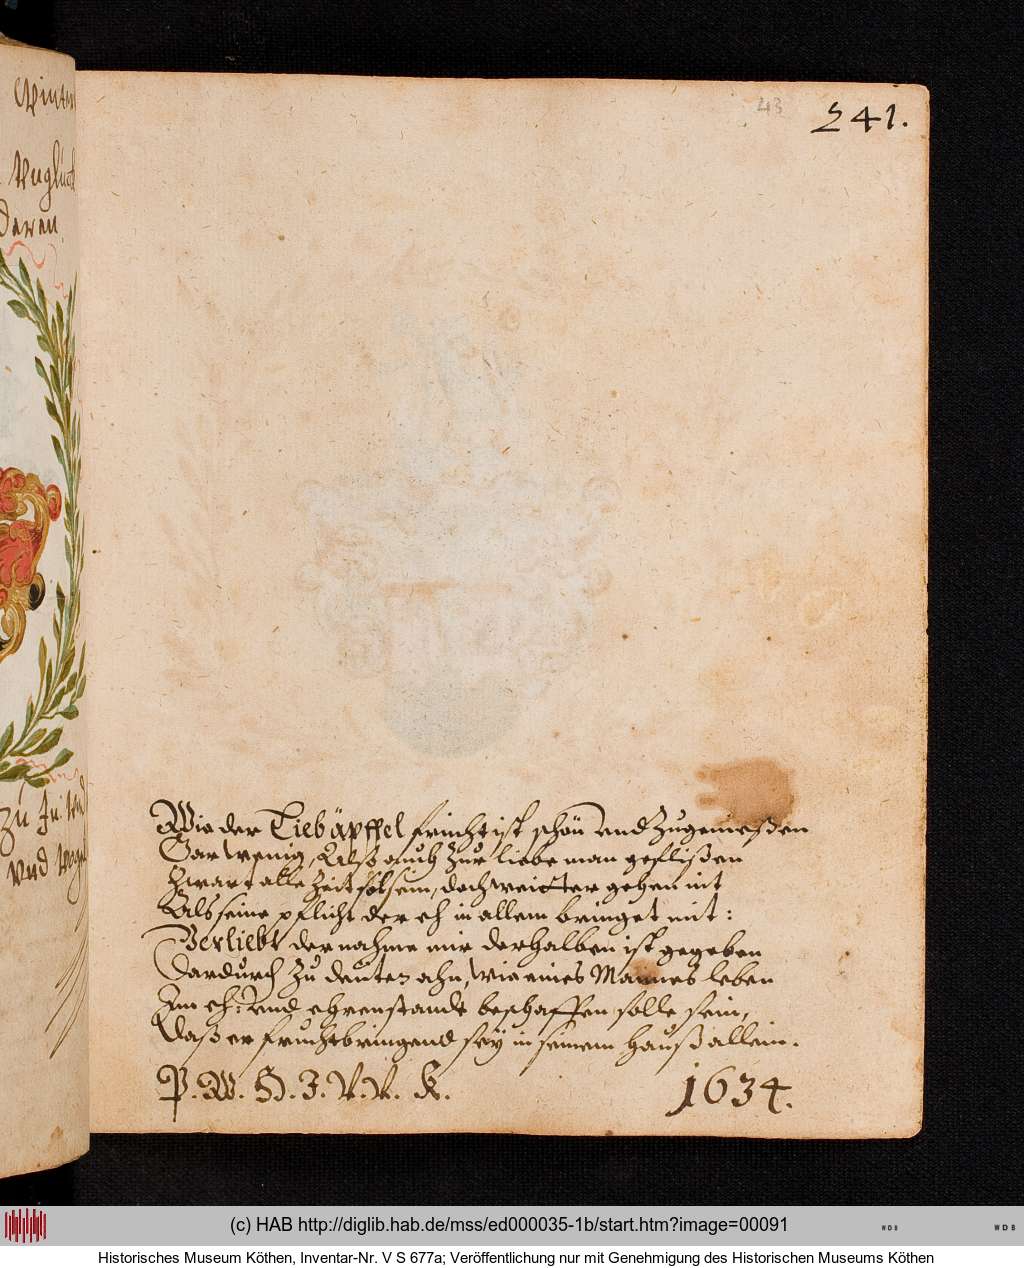 Winter
Unglück
deren
zu Ju: und
und weg
43
241.
Wie der Liebäpffel frucht ist schön und Zugenießen
Gar wenig, Alß auch Zur liebe man geflißen
Zwar alle Zeit sol sein, doch weitter gehen nit
Als seine pflicht der eh in allem bringet mit:
Verliebt der nahme mir derhalben ist gegeben
Dardurch Zu deuten ahn, wie eines Mannes leben
Im eh: und ehrenstande beschaffen solle sein,
Daß er fruchtbringend sey in seinem hauß allein.
P. W. H. Z. V. V. K.
1634.
(c) HAB http://diglib.hab.de/mss/ed000035-1b/start.htm?image=00091
WDB
WDB
Historisches Museum Köthen, Inventar-Nr. V S 677a; Veröffentlichung nur mit Genehmigung des Historischen Museums Köthen